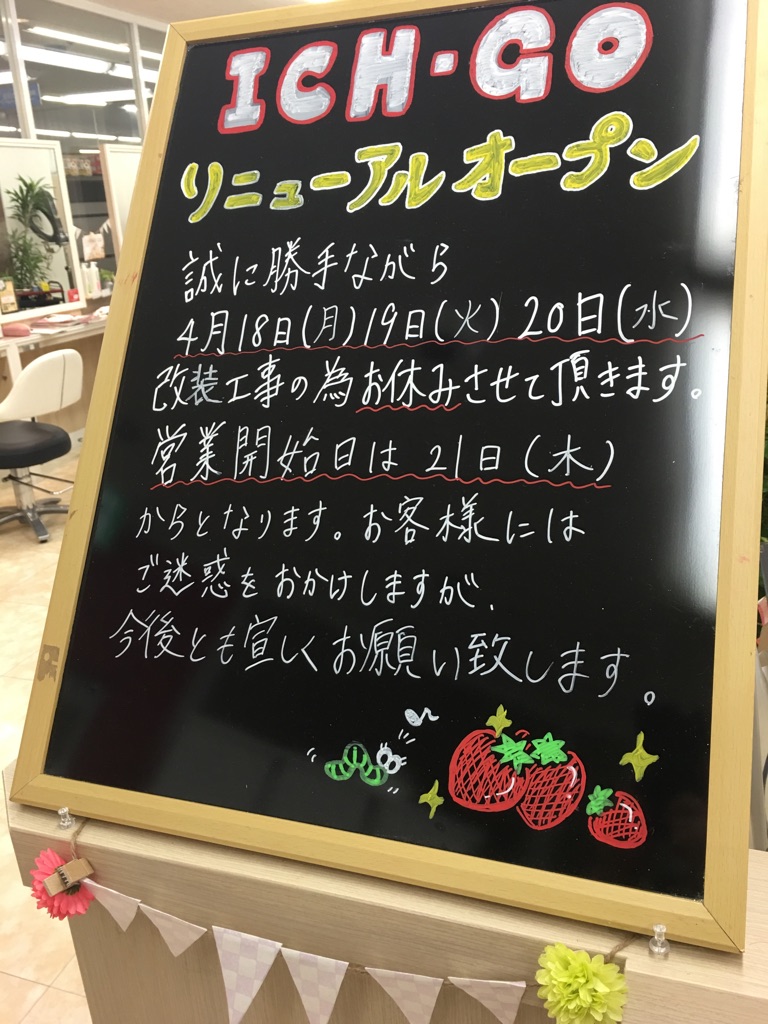 ICH・GO
リニューアルオープン
誠に勝手ながら
4月18日(月)19日(火)20日(水)
改装工事の為お休みさせて頂きます。
営業開始日は21日(木)
からとなります。お客様には
ご迷惑をおかけしますが、
今後とも宜しくお願い致します。